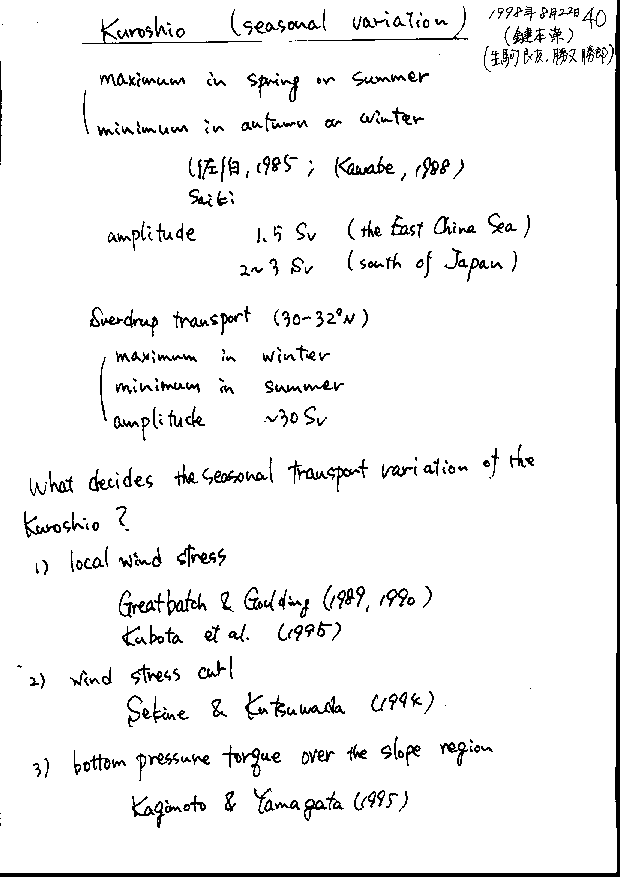 Kuroshio (seasonal variation)
1998年8月22日 40
(鍵本崇)
(生駒良友, 勝又勝郎)
maximum in spring or summer
minimum in autumn or winter
(佐伯, 1985 ; Kawabe, 1988)
Saiki
amplitude 1.5 Sv (the East China Sea)
2~3 Sv (south of Japan)
Sverdrup transport (30-32°N)
maximum in winter
minimum in summer
amplitude ~30 Sv
What decides the seasonal transport variation of the
Kuroshio ?
1) local wind stress
Greatbatch & Goulding (1989, 1990)
Kubota et al. (1995)
2) wind stress curl
Sekine & Kutsuwada (1994)
3) bottom pressure torque over the slope region
Kagimoto & Yamagata (1995)